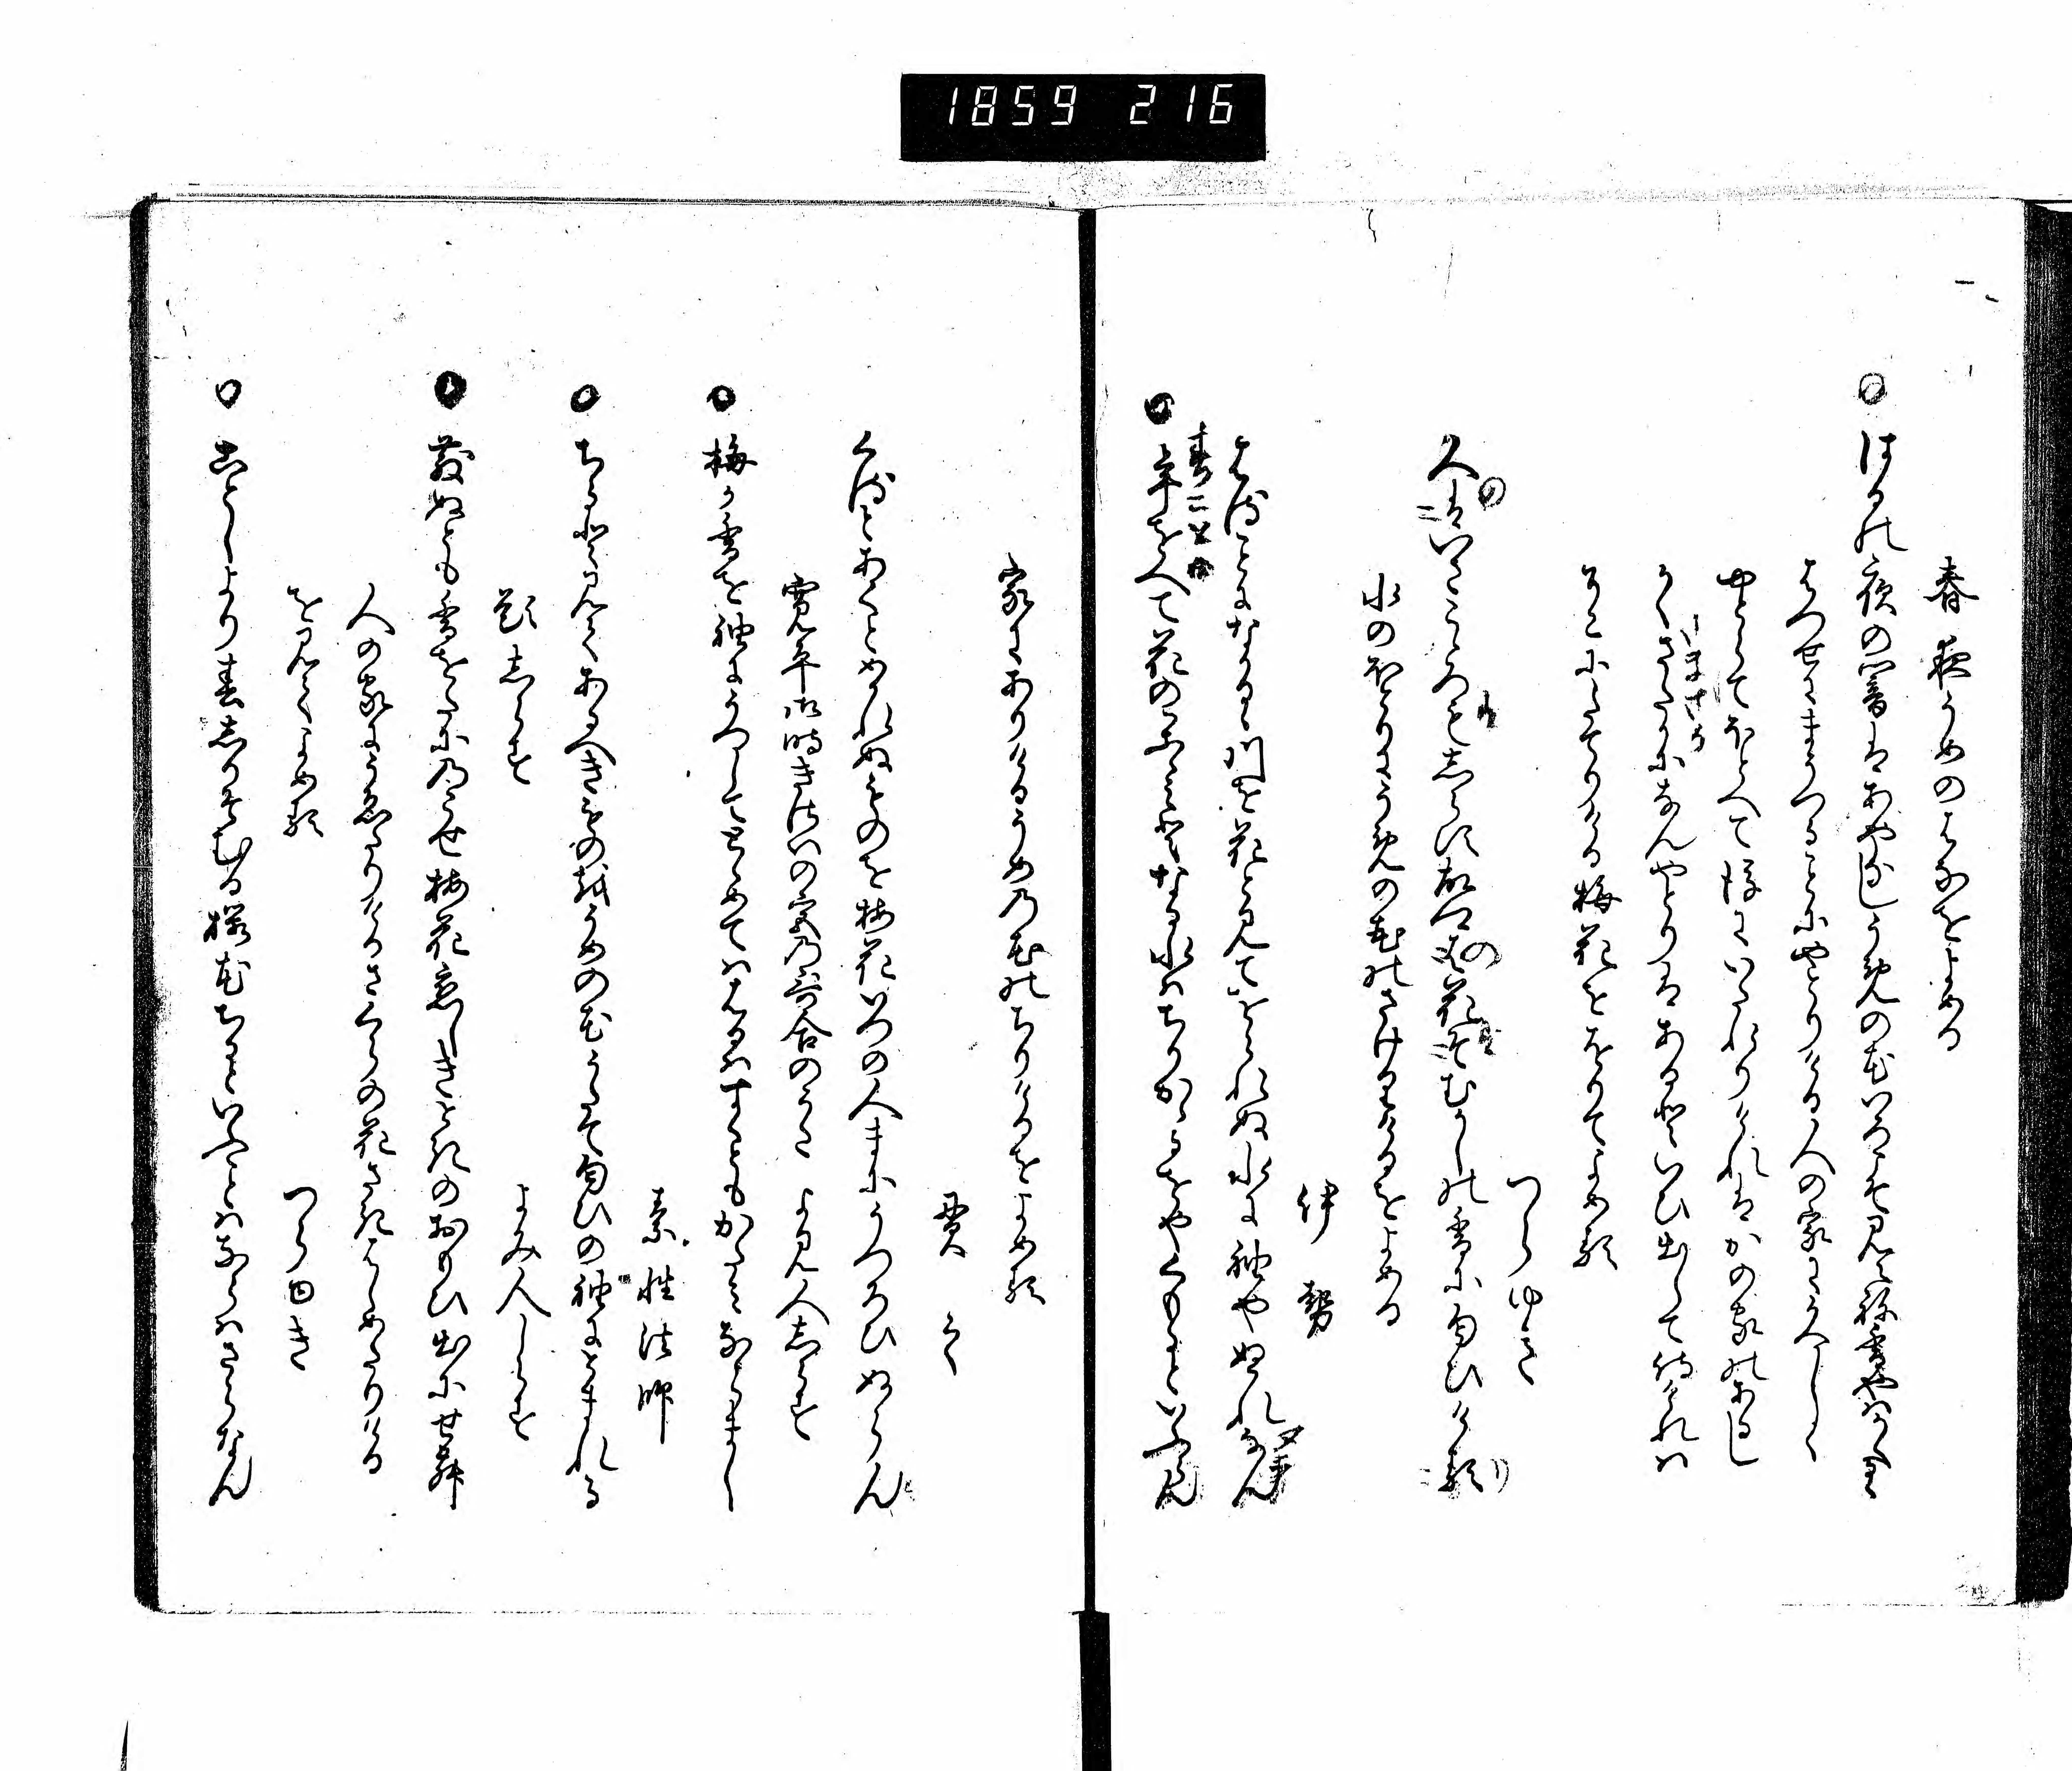 1859 216
春夜うめのはなをよめる
はるの夜の闇はあやなしうめの花いろこそ見えね香やはかくるゝ
はつせにまうつることにやとりける人の家にひさしく
やとらてほとへて後にいたれりけれはかの家のあるし
かくさたかになんやとりはあるといひ出して侍けれは
そこにたてりける梅花をおりてよめる
つらゆき
人はいさこゝろもしらす故さとは花そむかしの香に匂ひける
水のほとりにうめの花のさけりけるをよめる
伊勢
春ことになかるゝ川を花と見ておられぬ水に袖やぬれなん
年をへて花のかゝみとなる水はちりかゝるをやくもるといふらん
家にありけるうめの花のちりけるをよめる
貫之
くるとあくとめかれぬものを梅花いつの人まにうつろひぬらん
寛平御時きさいの宮の哥合のうた　よみ人しらす
梅か香を袖にうつしてとゝめてははるはすくともかたみならまし
素性法師
ちると見てあるへきものを梅の花うたて匂ひの袖にとまれる
題しらす　よみ人しらす
散ぬとも香をたにのこせ梅花恋しきときのおもひ出にせん
人の家にうゑたりけるさくらの花さきはしめたりける
を見てよめる
つらゆき
ことしより春しりそむる桜花ちるといふことはならはさらなん